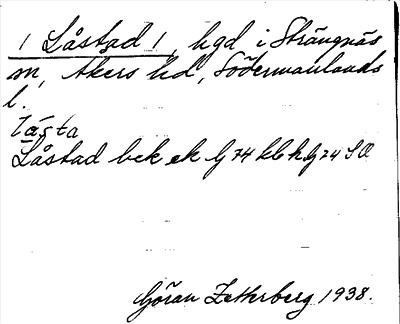 / Låstad /, hgd i Strängnäs
m, Åkers hd, Södermanlands
l.
Låsta
Låstad bek ek G 74 kb h G 74 SO
Göran Zetherberg 1938.